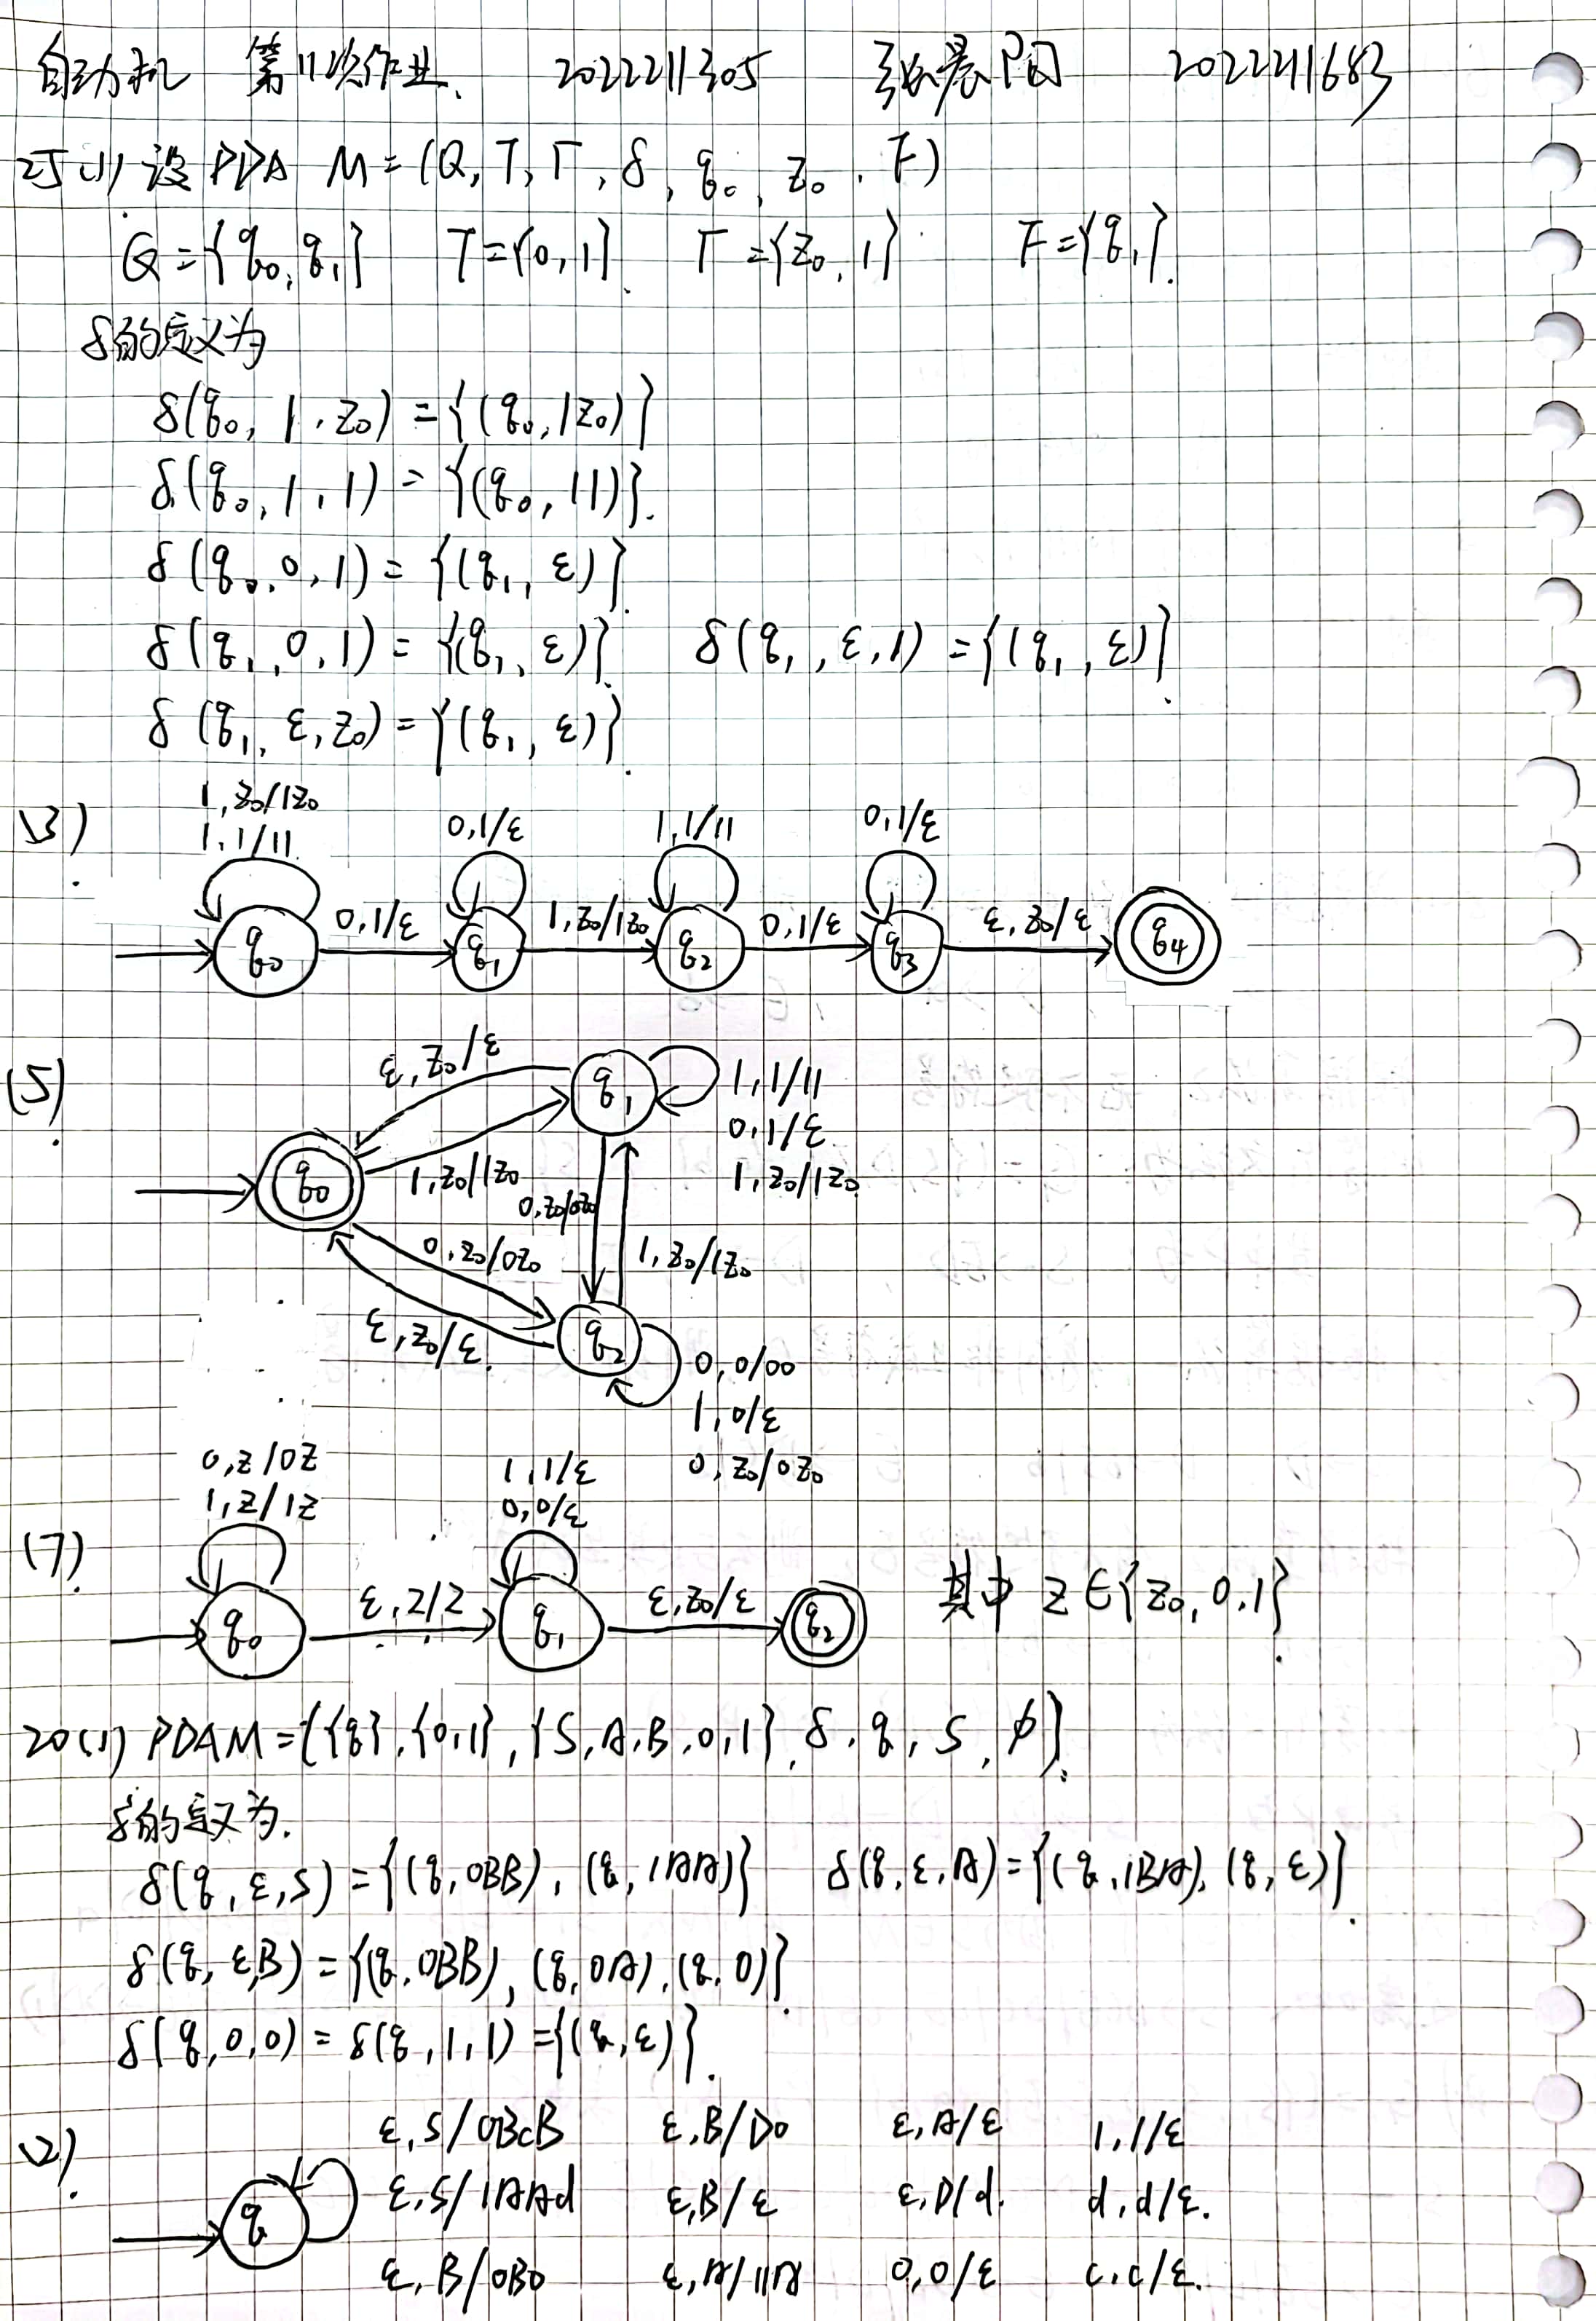 自动机 第11次作业. 2022211305 张晨阳 2022211683
25 (1) 设 PDA M=(Q, T, Γ, δ, q₀, z₀, F)
Q={q₀, q₁} T={0,1}. Γ={z₀, 1} F={q₁}.
δ的定义为
δ(q₀, 1, z₀) = {(q₀, 1z₀)}
δ(q₀, 1, 1) = {(q₀, 11)}.
δ(q₀, 0, 1) = {(q₁, ε)}.
δ(q₁, 0, 1) = {(q₁, ε)}. δ(q₁, ε, 1) = {(q₁, ε)}.
δ(q₁, ε, z₀) = {(q₁, ε)}.
(3).
1, z₀/1z₀
1, 1/11 0,1/ε 1,1/11 0,1/ε
q₀ 0,1/ε q₁ 1,z₀/1z₀ q₂ 0,1/ε q₃ ε,z₀/ε q₄
(5).
ε, z₀/ε q₁ 1,1/11
0,1/ε
q₀ 1,z₀/1z₀ 1,z₀/1z₀
0,z₀/0z₀
0,z₀/0z₀ 1,z₀/1z₀
ε,z₀/ε. q₂ 0,0/00
1,0/ε
0,z₀/0z₀
0,z/0z 1,1/ε
1,z/1z 0,0/ε
(7).
q₀ ε,z/z q₁ ε,z₀/ε q₂ 其中 z∈{z₀,0,1}.
20(1) PDA M=({q},{0,1},{S,A,B,0,1},δ,q,S,φ).
δ的定义为.
δ(q,ε,S) = {(q,0BB), (q,1AA)} δ(q,ε,A)={(q,1BA), (q,ε)}.
δ(q,ε,B) = {(q,0BB), (q,0A), (q,0)}.
δ(q,0,0) = δ(q,1,1) = {(q,ε)}.
(2).
ε,S/0BcB ε,B/D0 ε,A/ε 1,1/ε
q ε,S/1AAd ε,B/ε ε,D/d. d,d/ε.
ε,B/0B0 ε,A/11A 0,0/ε c,c/ε.